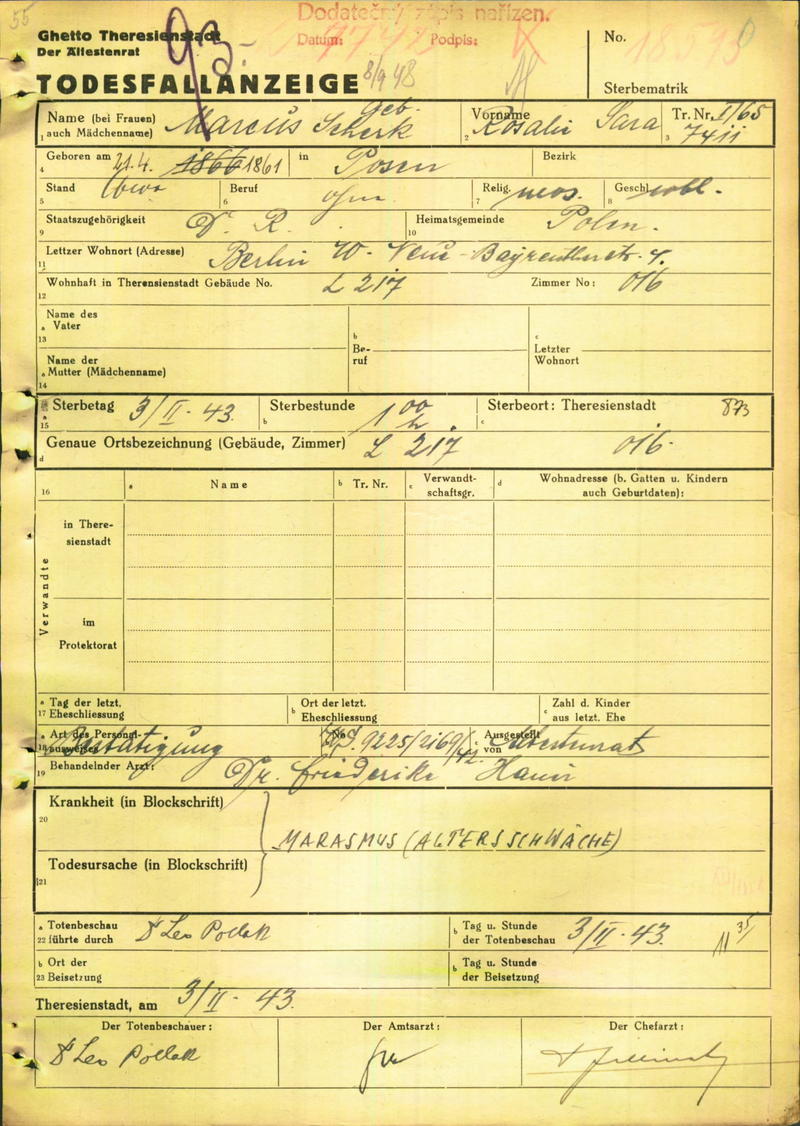 55
Dodatečný zápis nařízen.
Datum: Podpis:
93.-
8/9 48
Ghetto Theresienstadt
Der Ältestenrat
TODESFALLANZEIGE
No.
Sterbematrik
Name (bei Frauen) auch Mädchenname) Marcus geb. Scherk
Vorname Rosalie Sara
Tr. Nr. I/65 7411
Geboren am 21.4. 1866 1861 in Posen Bezirk
Stand Beruf ohne Relig. mos. Geschl. weibl.
Staatszugehörigkeit D. R. Heimatsgemeinde Polen.
Lettzer Wohnort (Adresse) Berlin W. Neue-Bayreutherstr. 4.
Wohnhaft in Therensienstadt Gebäude No. L 217 Zimmer No: 016
Name des Vater
Beruf
Letzter Wohnort
Name der Mutter (Mädchenname)
Sterbetag 3/II. 43. Sterbestunde 1 00 h. Sterbeort: Theresienstadt 873
Genaue Ortsbezeichnung (Gebäude, Zimmer) L 217 016.
16 Name Tr. Nr. Verwandtschaftsgr. Wohnadresse (b. Gatten u. Kindern auch Geburtdaten):
Verwandte
in Theresienstadt
im Protektorat
Tag der letzt. Eheschliessung
Ort der letzt. Eheschliessung
Zahl d. Kinder aus letzt. Ehe
Art des Personalausweises Bestätigung No. 9225/2169/42. Ausgestellt von
Behandelnder Arzt: Dr. Friederike
Krankheit (in Blockschrift)
MARASMUS (ALTERSSCHWÄCHE)
Todesursache (in Blockschrift)
Totenbeschau führte durch Dr Leo Pollak Tag u. Stunde der Totenbeschau 3/II. 43. 11 35/
Ort der Beisetzung Tag u. Stunde der Beisetzung
Theresienstadt, am 3/II. 43.
Der Totenbeschauer: Der Amtsarzt: Der Chefarzt:
Dr Leo Pollak